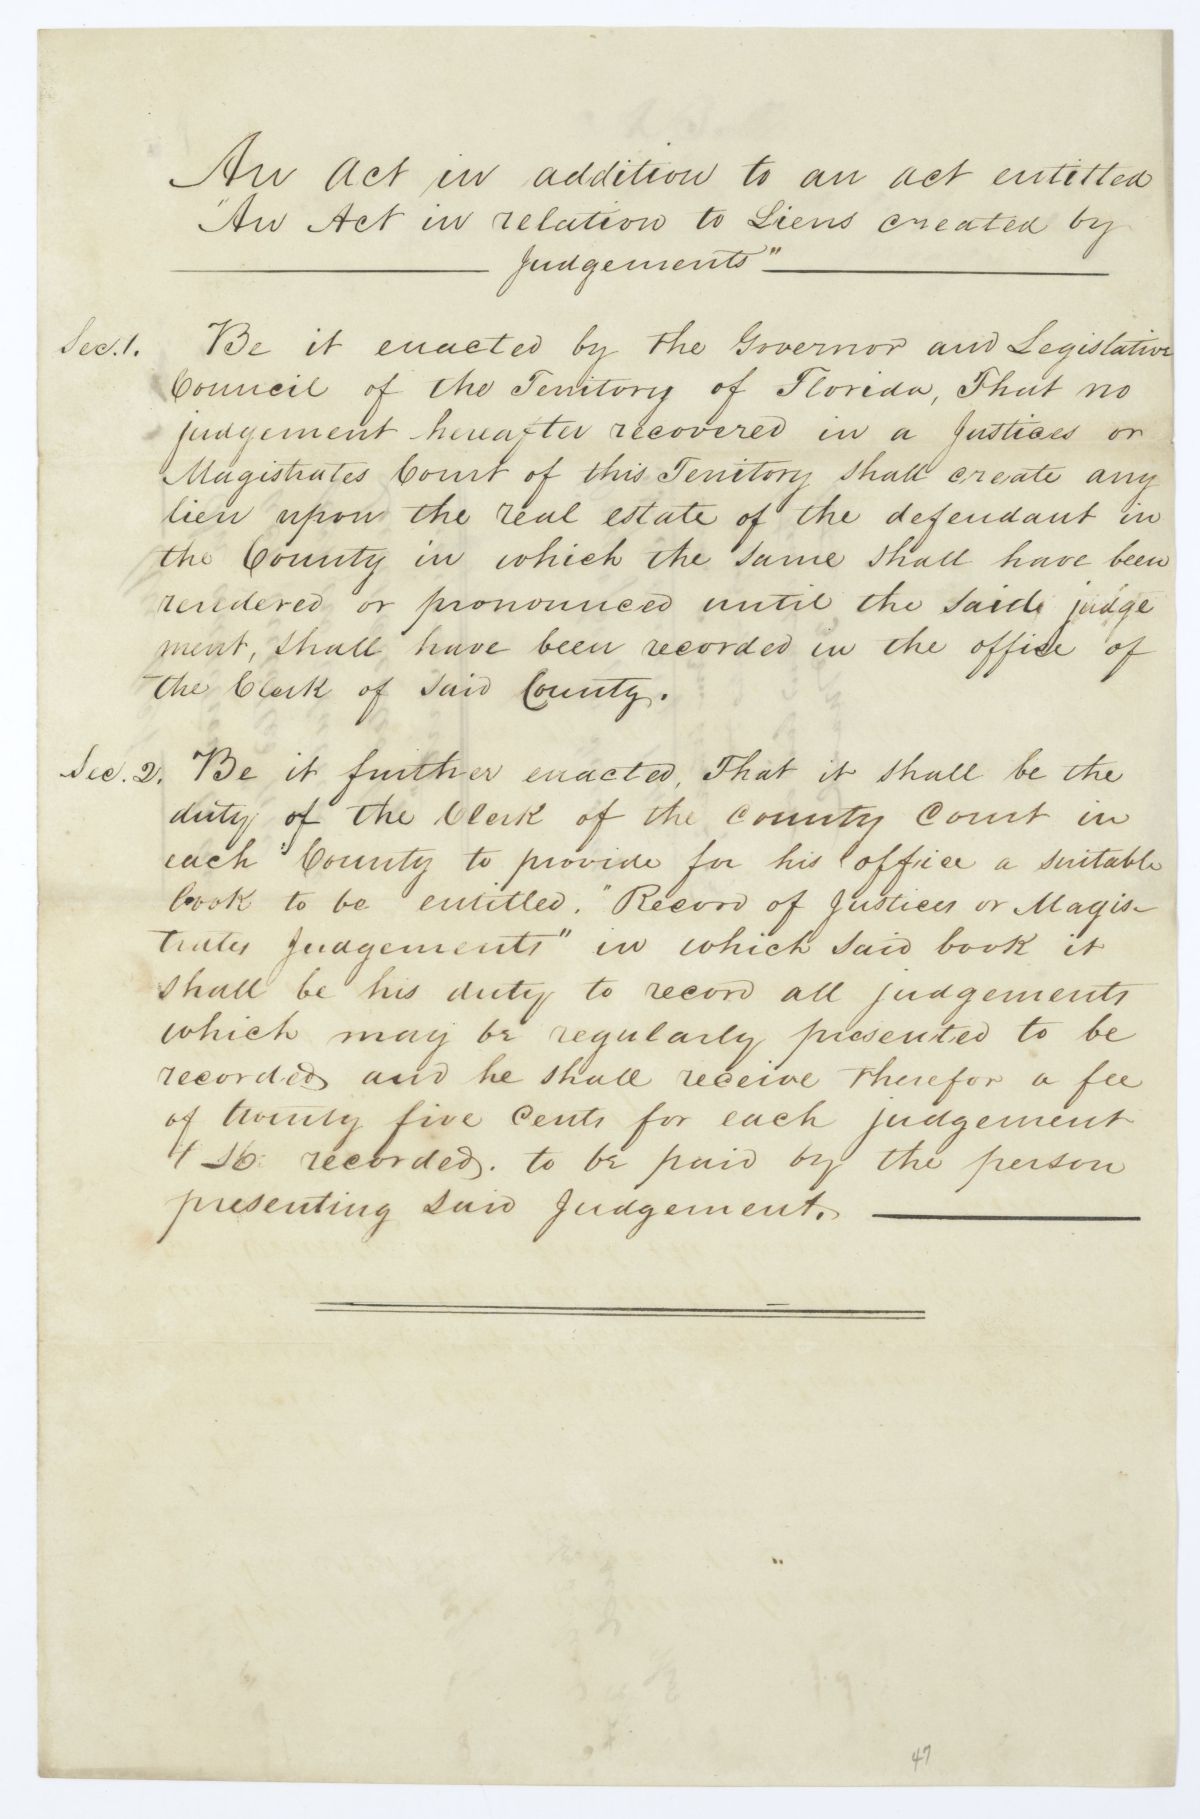 An Act in addition to an act entitled
"An Act in relation to Liens created by
Judgements"
Sec. 1. Be it enacted by the Governor and Legislative
Council of the Territory of Florida, That no
judgement hereafter recovered in a Justices or
Magistrates Court of this Territory shall create any
lien upon the real estate of the defendant in
the County in which the same shall have been
rendered or pronounced until the said judge
ment, shall have been recorded in the office of
the Clerk of said County.
Sec. 2. Be it further enacted, That it shall be the
duty of the Clerk of the County Court in
each County to provide for his office a suitable
book to be entitled. "Record of Justices or Magis-
trates Judgements" in which said book it
shall be his duty to record all judgements
which may be regularly presented to be
recorded and he shall receive therefor a fee
of twenty five cents for each judgement
recorded. to be paid by the person
presenting said Judgement.
47